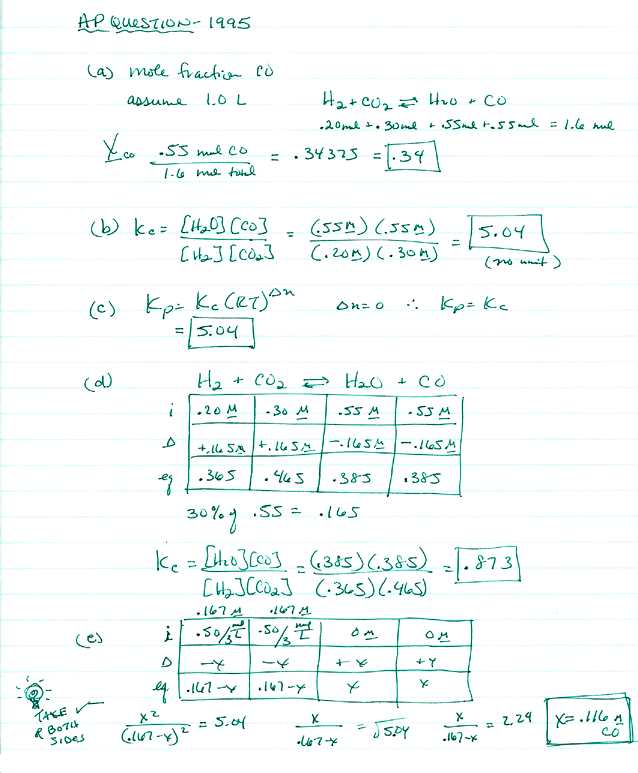 AP QUESTION - 1995
(a) mole fraction CO
assume 1.0 L H₂ + CO₂ ⇌ H₂O + CO
.20 mol + .30 mol + .55 mol + .55 mol = 1.6 mol
X CO .55 mol CO / 1.6 mol total = .34375 = .34
(b) Kc = [H₂O][CO] / [H₂][CO₂] = (.55M)(.55M) / (.20M)(.30M) = 5.04
(no unit)
(c) Kp = Kc(RT)^Δn Δn=0 ∴ Kp = Kc
= 5.04
(d) H₂ + CO₂ ⇌ H₂O + CO
i .20 M .30 M .55 M .55 M
Δ +.165M +.165M -.165M -.165M
eq .365 .465 .385 .385
30% of .55 = .165
Kc = [H₂O][CO] / [H₂][CO₂] = (.385)(.385) / (.365)(.465) = .873
.167 M .167 M
(e) i .50/3 mol/L .50/3 mol/L 0 M 0 M
Δ -x -x +x +x
eq .167-x .167-x x x
TAKE √
OF BOTH
SIDES
x² / (.167-x)² = 5.04 x / .167-x = √5.04 x / .167-x = 2.24 x = .116 M
CO